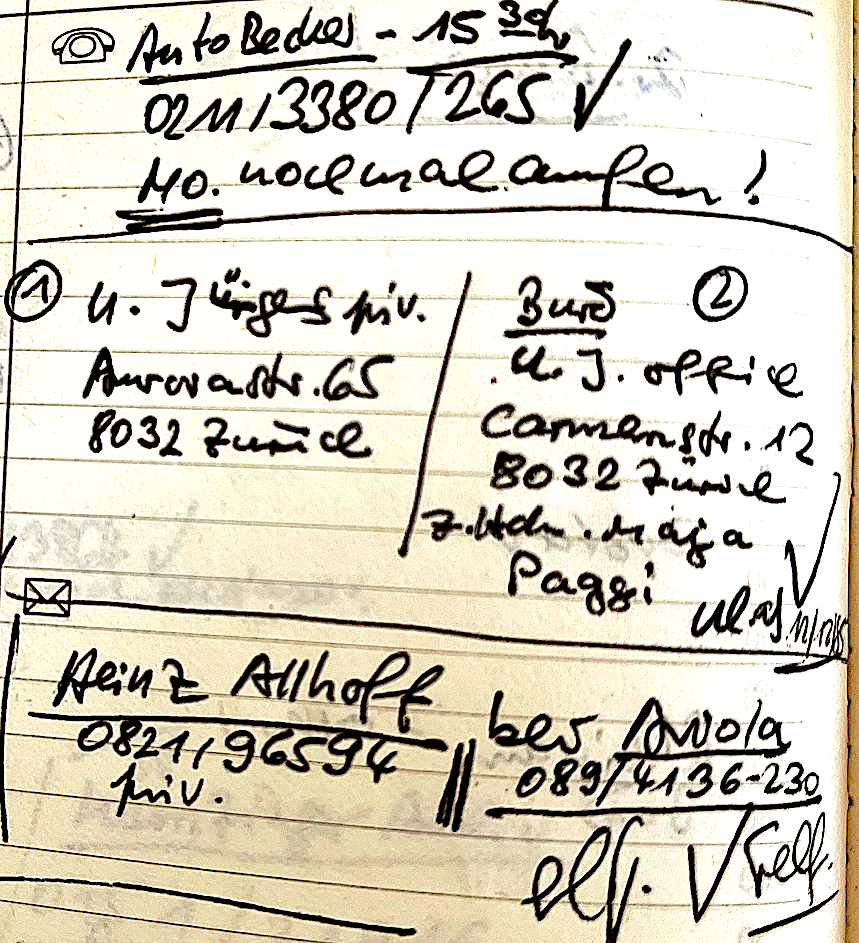 Auto Becker - 15 30h
0211/3380/265 ✓
Mo. nochmal anrufen!
① U. Jürgens priv.
Aurorastr. 65
8032 Zürich
Büro ②
U. J. office
Carmenstr. 12
8032 Zürich
z. Hdn. Maja
Paggi
Heinz Allhoff
0821/96594
priv.
bei Arrola
089/4136-230